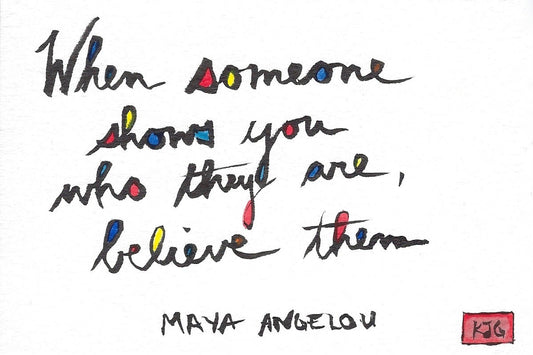 When someone
shows you
who they are,
believe them
MAYA ANGELOU
KJG